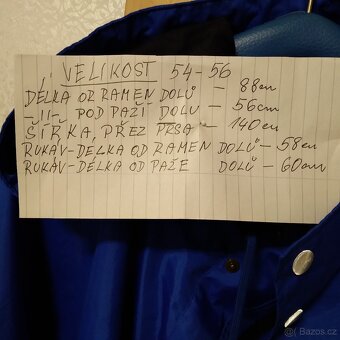 VELIKOST 54-56
DÉLKA OR RAMEN DOLŮ - 88cm
-II- POD PAŽÍ DOLU - 56cm
ŠÍŘKA, PŘEZ PRSA - 140cm
RUKÁV-DÉLKA OD RAMEN DOLŮ-58cm
RUKÁV-DÉLKA OD PAŽE DOLŮ-60cm
Bazos.cz